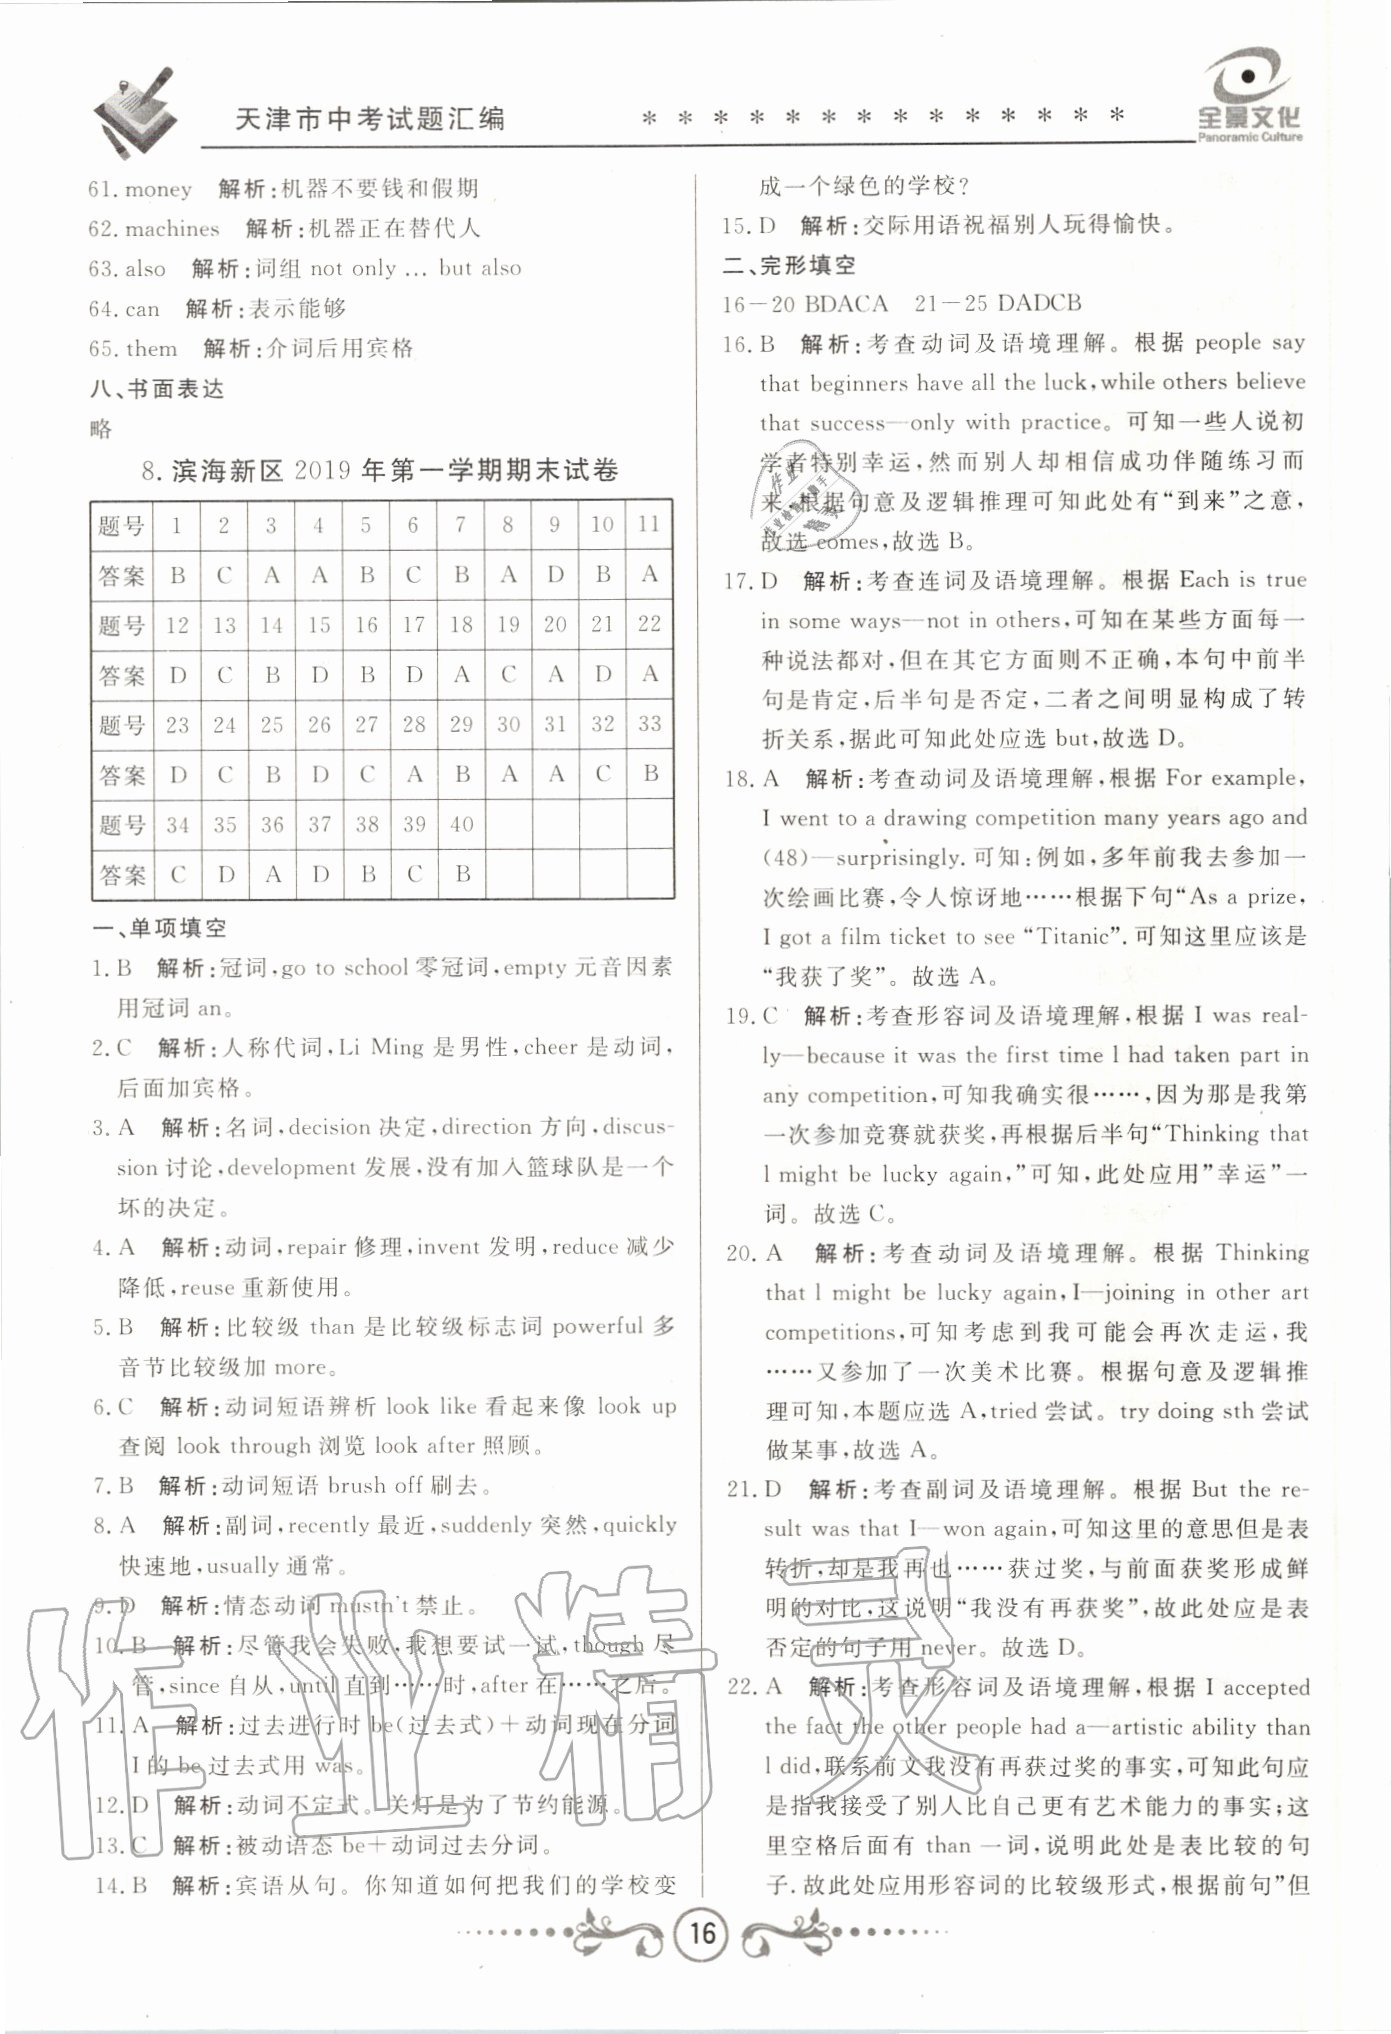 天津市中考试题汇编
* * * * * * * * * * * * * *
全景文化
Panoramic Culture
61. money 解析:机器不要钱和假期
62. machines 解析:机器正在替代人
63. also 解析:词组 not only … but also
64. can 解析:表示能够
65. them 解析:介词后用宾格
八、书面表达
略
8. 滨海新区 2019 年第一学期期末试卷
题号 1 2 3 4 5 6 7 8 9 10 11
答案 B C A A B C B A D B A
题号 12 13 14 15 16 17 18 19 20 21 22
答案 D C B D B D A C A D A
题号 23 24 25 26 27 28 29 30 31 32 33
答案 D C B D C A B A A C B
题号 34 35 36 37 38 39 40
答案 C D A D B C B
一、单项填空
1. B 解析:冠词,go to school 零冠词,empty 元音因素
用冠词 an。
2. C 解析:人称代词,Li Ming 是男性,cheer 是动词,
后面加宾格。
3. A 解析:名词,decision 决定,direction 方向,discus-
sion 讨论,development 发展,没有加入篮球队是一个
坏的决定。
4. A 解析:动词,repair 修理,invent 发明,reduce 减少
降低,reuse 重新使用。
5. B 解析:比较级 than 是比较级标志词 powerful 多
音节比较级加 more。
6. C 解析:动词短语辨析 look like 看起来像 look up
查阅 look through 浏览 look after 照顾。
7. B 解析:动词短语 brush off 刷去。
8. A 解析:副词,recently 最近,suddenly 突然,quickly
快速地,usually 通常。
9. D 解析:情态动词 mustn't 禁止。
10. B 解析:尽管我会失败,我想要试一试,though 尽
管,since 自从,until 直到……时,after 在……之后。
11. A 解析:过去进行时 be(过去式)+动词现在分词
I 的 be 过去式用 was。
12. D 解析:动词不定式。关灯是为了节约能源。
13. C 解析:被动语态 be+动词过去分词。
14. B 解析:宾语从句。你知道如何把我们的学校变
成一个绿色的学校?
15. D 解析:交际用语祝福别人玩得愉快。
二、完形填空
16-20 BDACA 21-25 DADCB
16. B 解析:考查动词及语境理解。根据 people say
that beginners have all the luck,while others believe
that success—only with practice。可知一些人说初
学者特别幸运,然而别人却相信成功伴随练习而
来,根据句意及逻辑推理可知此处有“到来”之意,
故选 comes,故选 B。
17. D 解析:考查连词及语境理解。根据 Each is true
in some ways—not in others,可知在某些方面每一
种说法都对,但在其它方面则不正确,本句中前半
句是肯定,后半句是否定,二者之间明显构成了转
折关系,据此可知此处应选 but,故选 D。
18. A 解析:考查动词及语境理解,根据 For example,
I went to a drawing competition many years ago and
(48)—surprisingly. 可知:例如,多年前我去参加一
次绘画比赛,令人惊讶地……根据下句“As a prize,
I got a film ticket to see “Titanic”. 可知这里应该是
“我获了奖”。故选 A。
19. C 解析:考查形容词及语境理解,根据 I was real-
ly—because it was the first time l had taken part in
any competition,可知我确实很……,因为那是我第
一次参加竞赛就获奖,再根据后半句“Thinking that
l might be lucky again,”可知,此处应用”幸运”一
词。故选 C。
20. A 解析:考查动词及语境理解。根据 Thinking
that l might be lucky again,I—joining in other art
competitions,可知考虑到我可能会再次走运,我
……又参加了一次美术比赛。根据句意及逻辑推
理可知,本题应选 A,tried 尝试。try doing sth 尝试
做某事,故选 A。
21. D 解析:考查副词及语境理解。根据 But the re-
sult was that I—won again,可知这里的意思但是表
转折,却是我再也……获过奖,与前面获奖形成鲜
明的对比,这说明“我没有再获奖”,故此处应是表
否定的句子用 never。故选 D。
22. A 解析:考查形容词及语境理解,根据 I accepted
the fact the other people had a—artistic ability than
l did,联系前文我没有再获过奖的事实,可知此句应
是指我接受了别人比自己更有艺术能力的事实;这
里空格后面有 than 一词,说明此处是表比较的句
子. 故此处应用形容词的比较级形式,根据前句"但
16
作业精灵